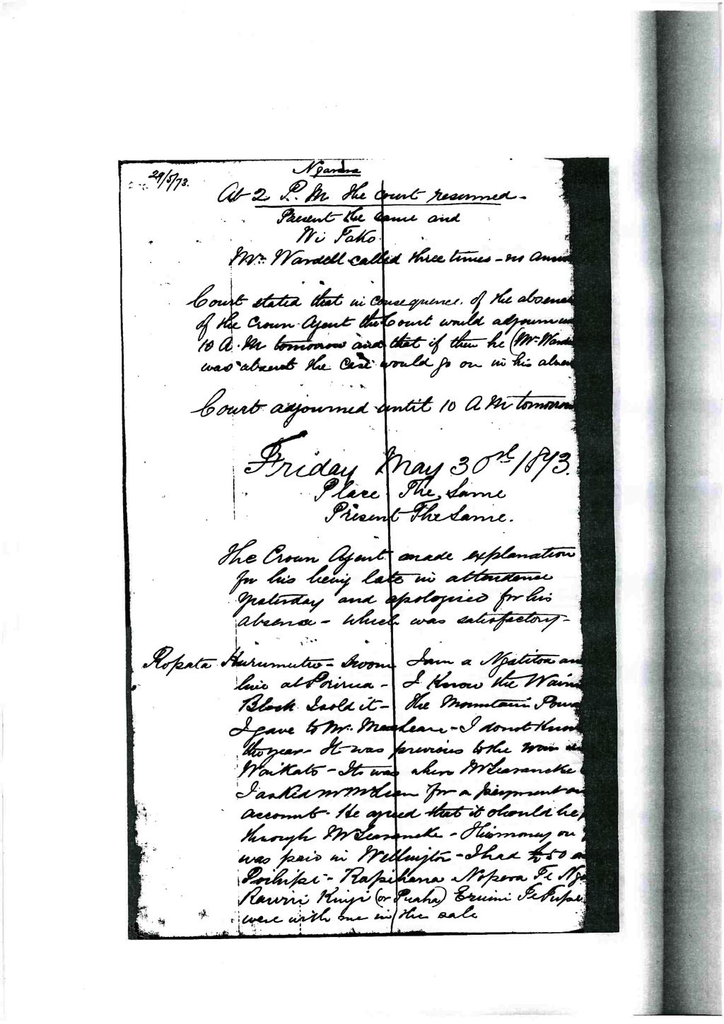 29/5/73.
Ngarara
At 2 P.M the court resumed.
Present the same and
Wi Tako
Mr. Wardell called three times - no
Court stated that in consequence of the absence
of the Crown Agent the Court would adjourn
10 A.M tomorrow and that if then he (Mr Warde
was absent the case would go on in his absen
Court adjourned until 10 A M tomorrow
Friday May 30th 1873.
Place The Same
Present The Same.
The Crown Agent made explanation
for his being late in attendance
yesterday and apologised for his
absence - which was satisfactory -
Ropata Hurumutu - sworn I am a Ngatitoa an
live at Porirua - I know the Wain
Block I sold it - the Mountain
I gave to Mr. - I do not know
the year - It was previous to the war in
Waikato - It was when Mr Searancke
I asked Mr McLean for a payment on
account - He agreed that it should be
through Mr Searancke - His money on
was paid in Wellington - I had £50 
- Rapihana Nopera Te Nga
Rawiri Kingi (or Puaha) Te
were with me in the sale